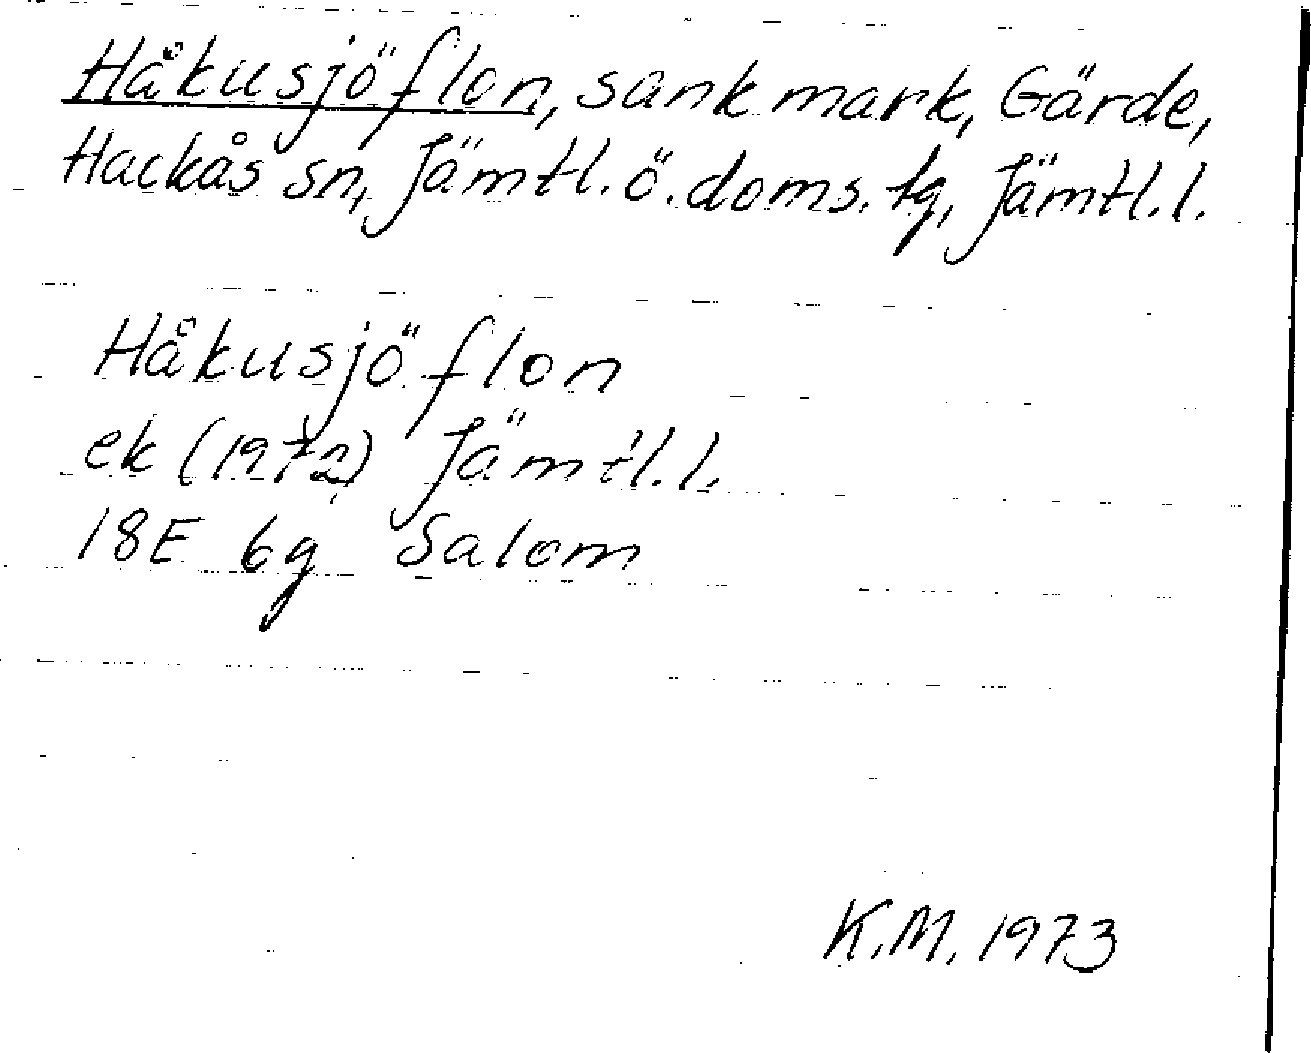 Håkusjöflon, sank mark, Gärde,
Hackås sn, Jämtl. ö. doms. tg, Jämtl. l.
Håkusjöflon
ek (1972) Jämtl. l.
18E 6g Salom
K.M. 1973